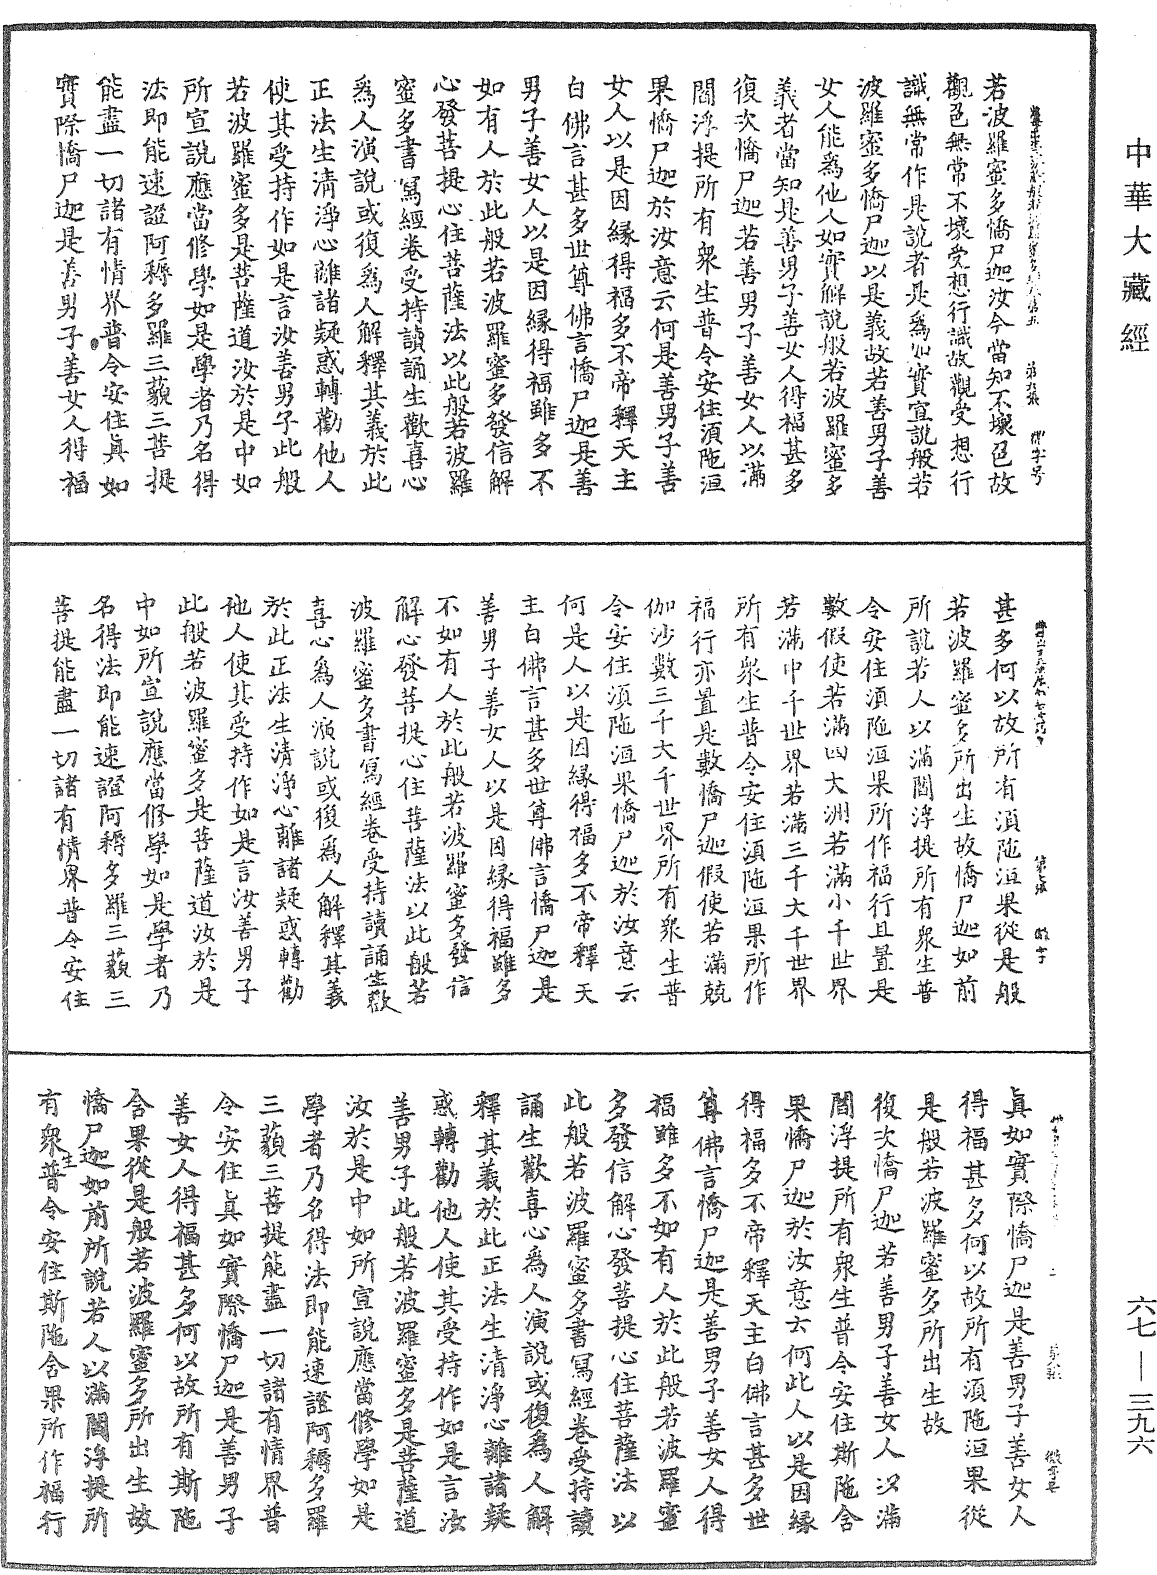 中華大藏經
若波羅蜜多憍尸迦汝今當知不壞色故
觀色無常不壞受想行識故觀受想行
識無常作是說者是爲如實宣說般若
波羅蜜多憍尸迦以是義故若善男子善
女人能爲他人如實解說般若波羅蜜多
義者當知是善男子善女人得福甚多
復次憍尸迦若善男子善女人以滿
閻浮提所有衆生普令安住須陁洹
果憍尸迦於汝意云何是善男子善
女人以是因緣得福多不帝釋天主
白佛言甚多世尊佛言憍尸迦是善
男子善女人以是因緣得福雖多不
如有人於此般若波羅蜜多發信解
心發菩提心住菩薩法以此般若波羅
蜜多書寫經卷受持讀誦生歡喜心
爲人演說或復爲人解釋其義於此
正法生清淨心離諸疑惑轉勸他人
使其受持作如是言汝善男子此般
若波羅蜜多是菩薩道汝於是中如
所宣說應當修學如是學者乃名得
法即能速證阿耨多羅三藐三菩提
能盡一切諸有情界普令安住眞如
實際憍尸迦是善男子善女人得福
甚多何以故所有須陁洹果從是般
若波羅蜜多所出生故憍尸迦如前
所說若人以滿閻浮提所有衆生普
令安住須陁洹果所作福行且置是
數假使若滿四大洲若滿小千世界
若滿中千世界若滿三千大千世界
所有衆生普令安住須陁洹果所作
福行亦置是數憍尸迦假使若滿兢
伽沙數三千大千世界所有衆生普
令安住須陁洹果憍尸迦於汝意云
何是人以是因緣得福多不帝釋天
主白佛言甚多世尊佛言憍尸迦是
善男子善女人以是因緣得福雖多
不如有人於此般若波羅蜜多發信
解心發菩提心住菩薩法以此般若
波羅蜜多書寫經卷受持讀誦生歡
喜心爲人演說或復爲人解釋其義
於此正法生清淨心離諸疑惑轉勸
他人使其受持作如是言汝善男子
此般若波羅蜜多是菩薩道汝於是
中如所宣說應當修學如是學者乃
名得法即能速證阿耨多羅三藐三
菩提能盡一切諸有情界普令安住
眞如實際憍尸迦是善男子善女人
得福甚多何以故所有須陁洹果從
是般若波羅蜜多所出生故
復次憍尸迦若善男子善女人以滿
閻浮提所有衆生普令安住斯陁含
果憍尸迦於汝意云何此人以是因緣
得福多不帝釋天主白佛言甚多世
尊佛言憍尸迦是善男子善女人得
福雖多不如有人於此般若波羅蜜
多發信解心發菩提心住菩薩法以
此般若波羅蜜多書寫經卷受持讀
誦生歡喜心爲人演說或復爲人解
釋其義於此正法生清淨心離諸疑
惑轉勸他人使其受持作如是言汝
善男子此般若波羅蜜多是菩薩道
汝於是中如所宣說應當修學如是
學者乃名得法即能速證阿耨多羅
三藐三菩提能盡一切諸有情界普
令安住眞如實際憍尸迦是善男子
善女人得福甚多何以故所有斯陁
含果從是般若波羅蜜多所出生故
憍尸迦如前所說若人以滿閻浮提所
有衆生普令安住斯陁含果所作福行
六七—三九六